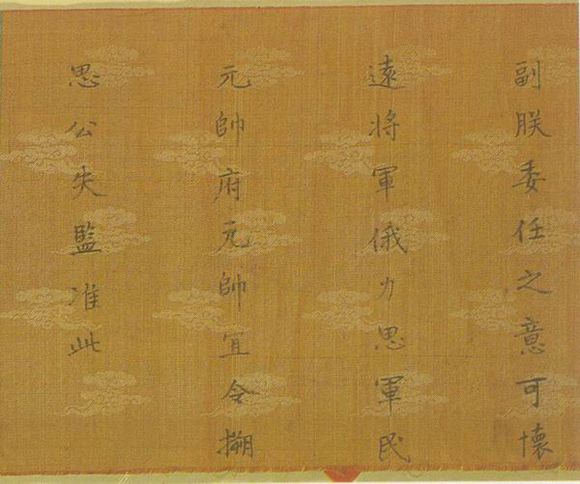 副朕委任之意可懷
遠将軍俄力思軍民
元帥府元帥宜令搠
思公失監准此